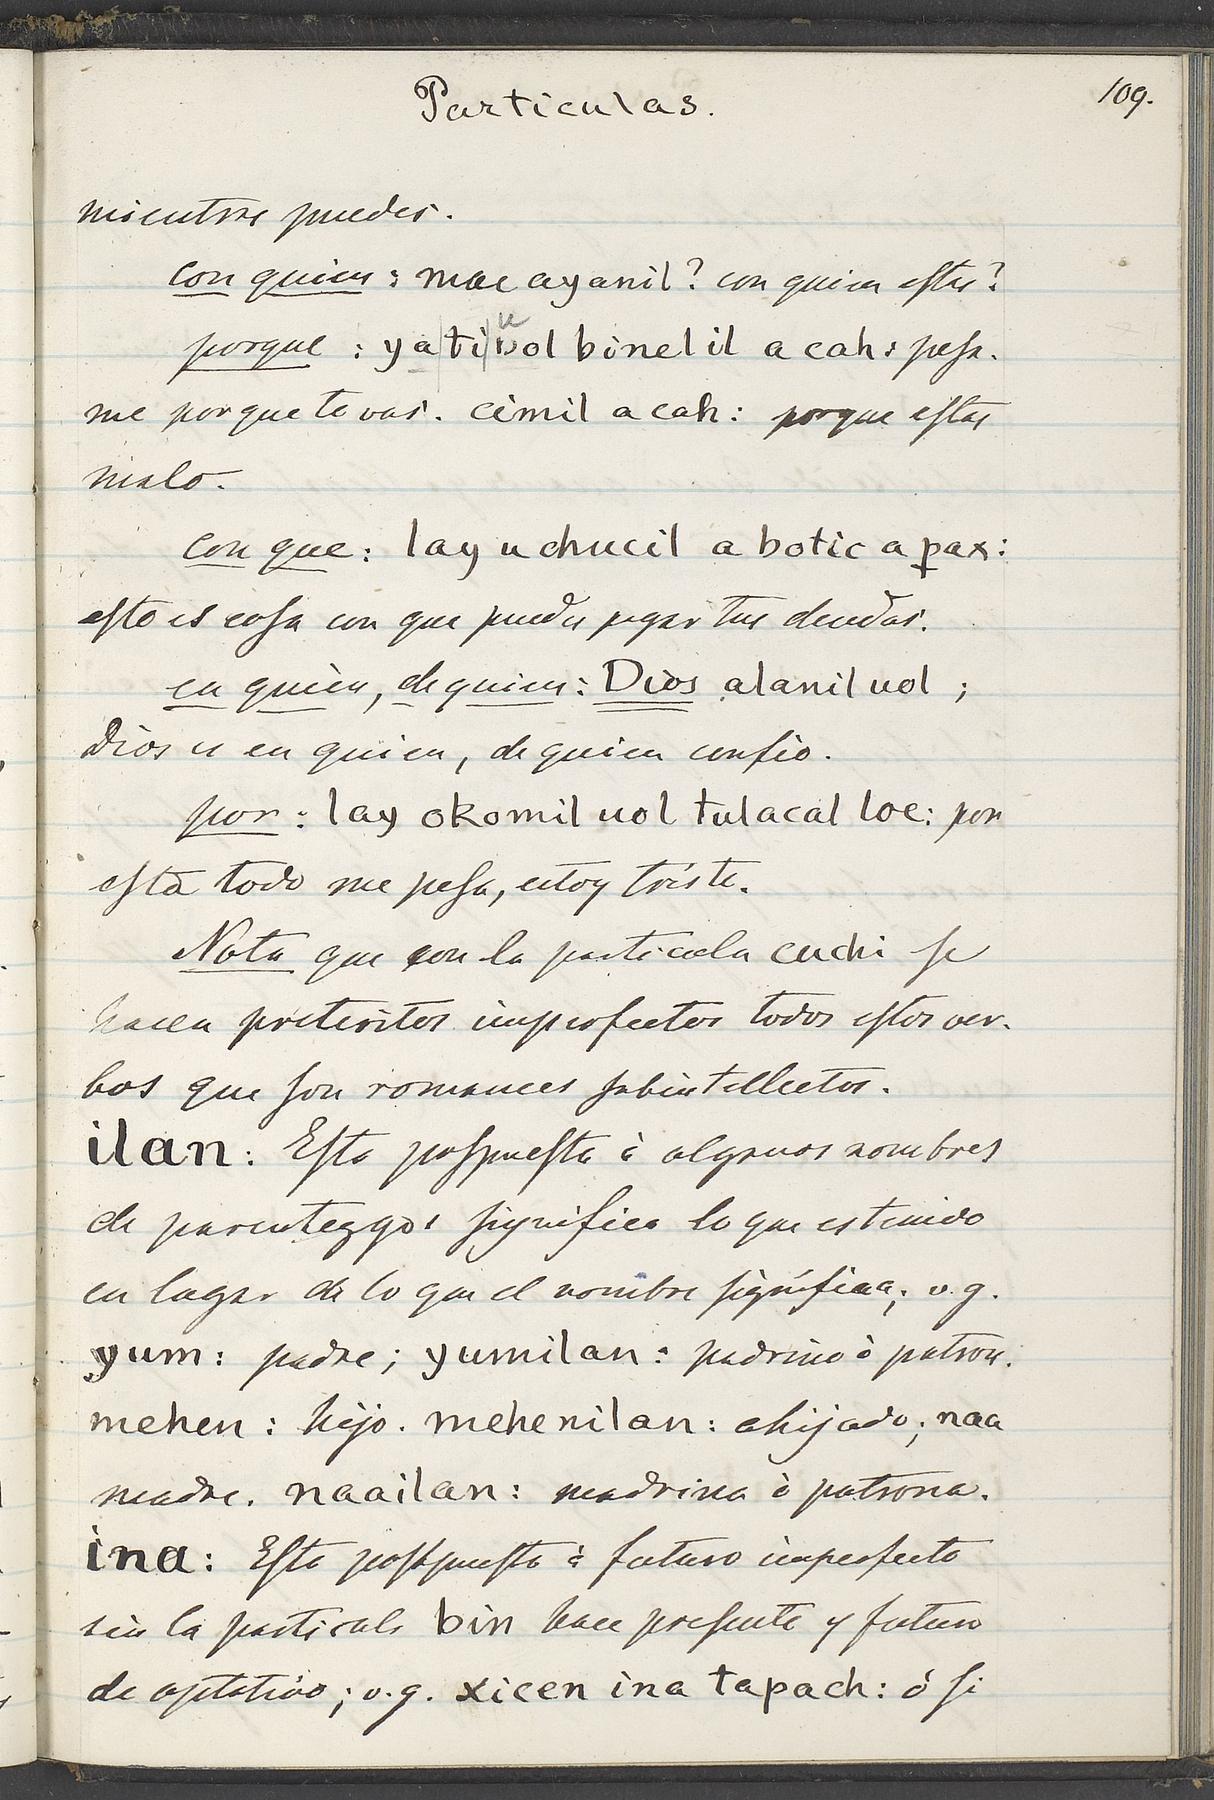 Particulas.
109.
mientras puedes.
con quien: mac ayanil? con quien estas?
porque: yatiuol binelil a cah: pesa-
me porque te vas. cimil a cah: porque estas
malo.
con que: lay u chucil a botic a pax:
esto es cosa con que puedes pagar tus deudas.
en quien, de quien: Dios alanil uol;
Dios es en quien, de quien confio.
por: lay okomil uol tulacal loe: por
esta todo me pesa, estoy triste.
Nota que con la particula cuchi se
hacen preteritos imperfectos todos estos ver-
bos que son romances subintellectos.
ilan: Esta pospuesta à algunos nombres
de parentezgos significa lo que es tenido
en lugar de lo que el nombre significa; v.g.
yum: padre; yumilan: padrino ò patron.
mehen: hijo. mehenilan: ahijado; naa
madre. naailan: madrina ò patrona.
ina: Esta postpuesta à futuro imperfecto
sin la particula bin hace presente y futuro
de optativo; v.g. xicen ina tapach: ó si